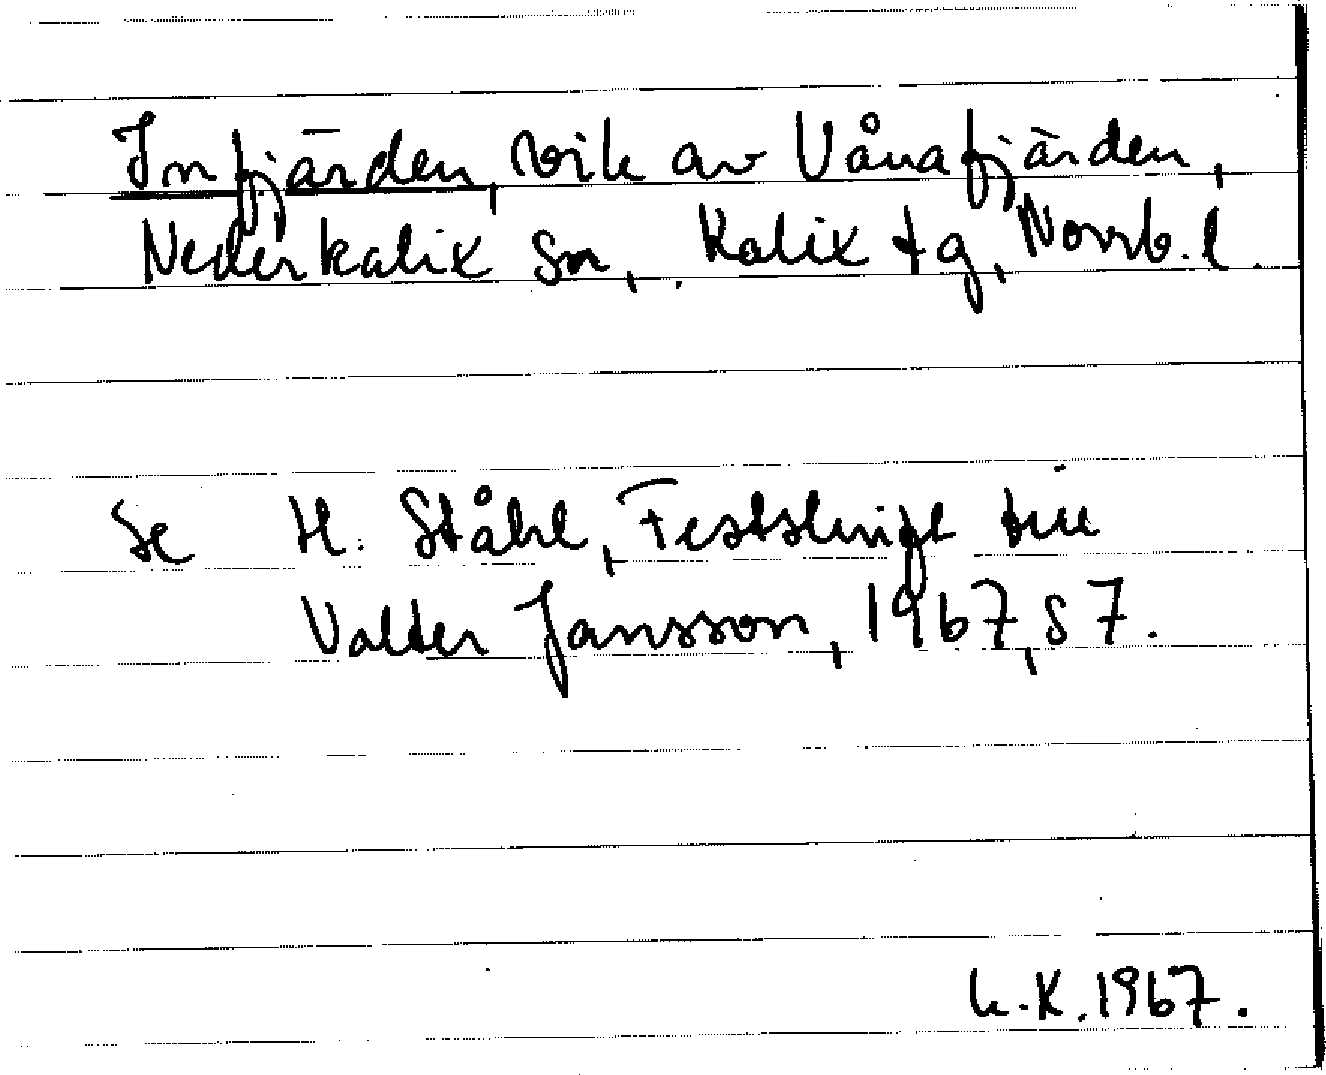 Infjärden, vik av Vånafjärden,
Nederkalix sn, Kalix tg, Norrb. l.
Se H. Ståhl, Festskrift till
Valter Jansson, 1967, s 7.
K.1967.